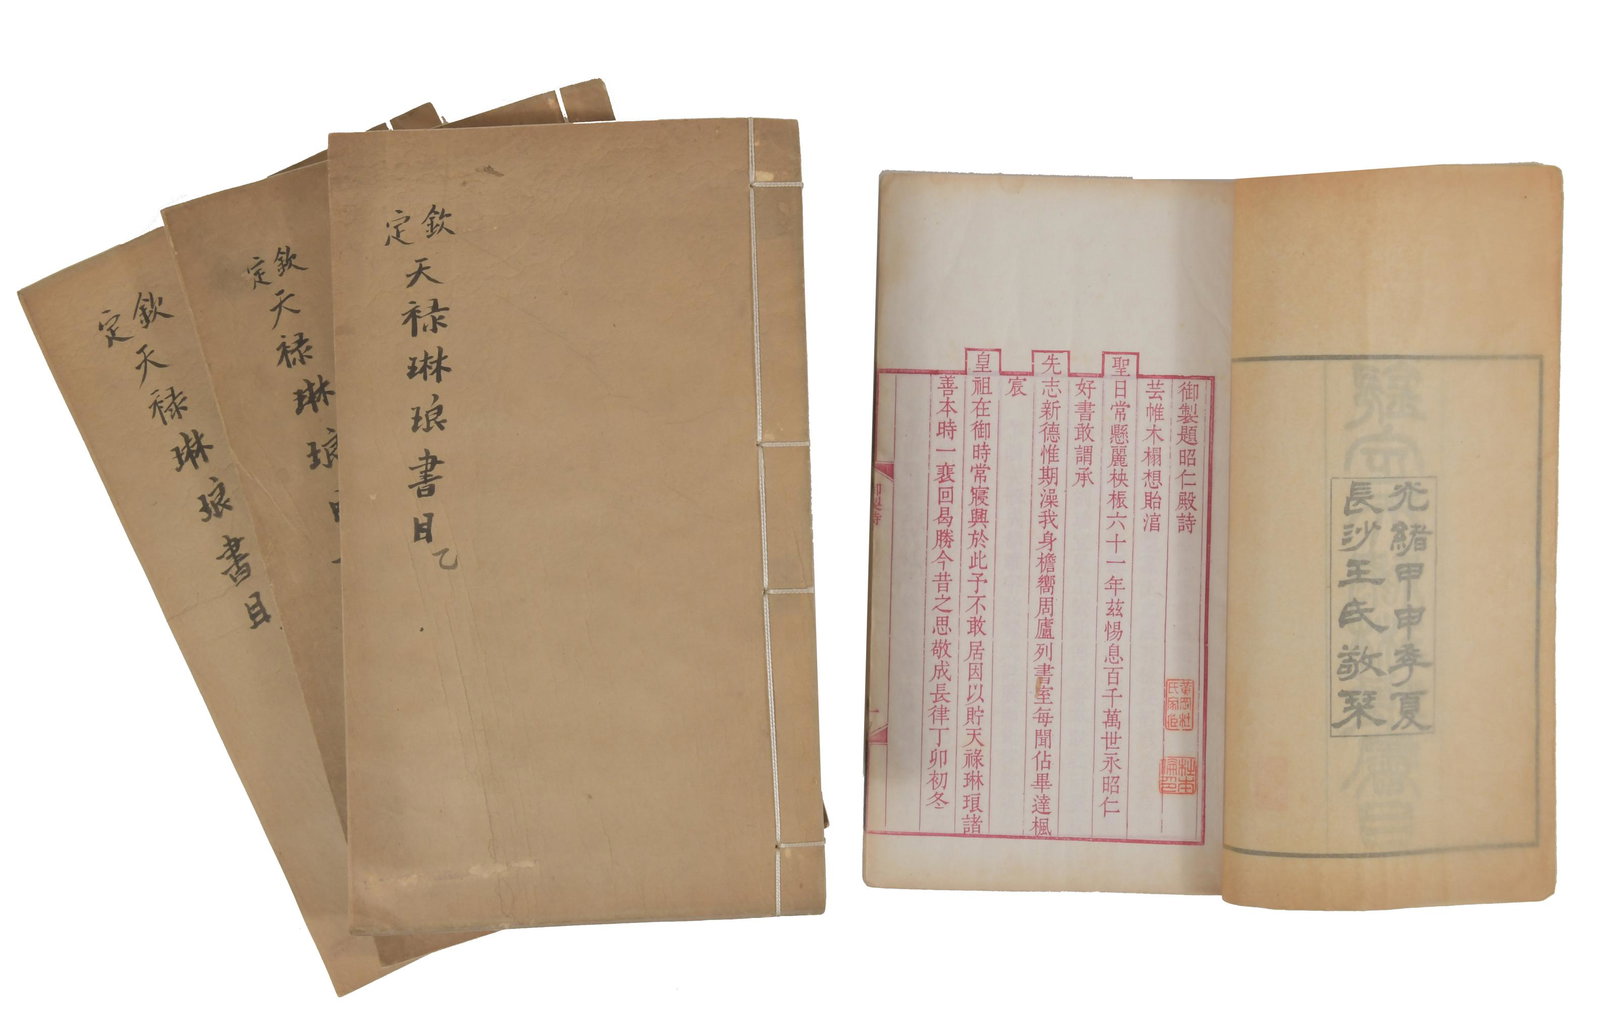 欽定天禄琳琅書目
欽定天禄琳琅
欽定天禄琳琅書目乙
光緒甲申季夏
長沙王氏敬栞
御製題昭仁殿詩
芸帷木榻想貽㴞
聖日常懸麗袂棖六十一年茲惕息百千萬世永昭仁
好書敢謂承
先志新德惟期澡我身檐嚮周廬列書至每聞佔畢達楓
宸
皇祖在御時常寢興於此予不敢居因以貯天祿琳琅諸
善本時一裵回曷勝今昔之思敬成長律丁卯初冬